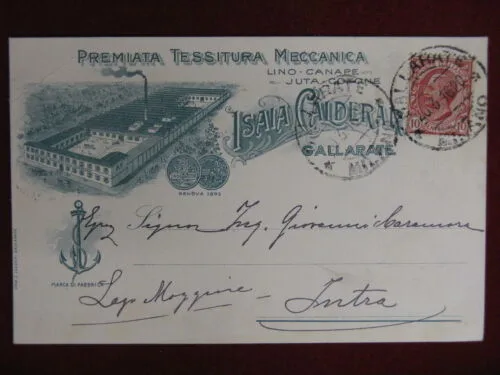 PREMIATA TESSITURA MECCANICA
LINO-CANAPE
JUTA-COTONE
ISAIA CALDERARA
GALLARATE
GENOVA 1892
MARCA DI FABBRICA
GALLARATE
MILANO
10 10
Egr Signor Ing. Giovanni Caramora
Lago Maggiore - Intra